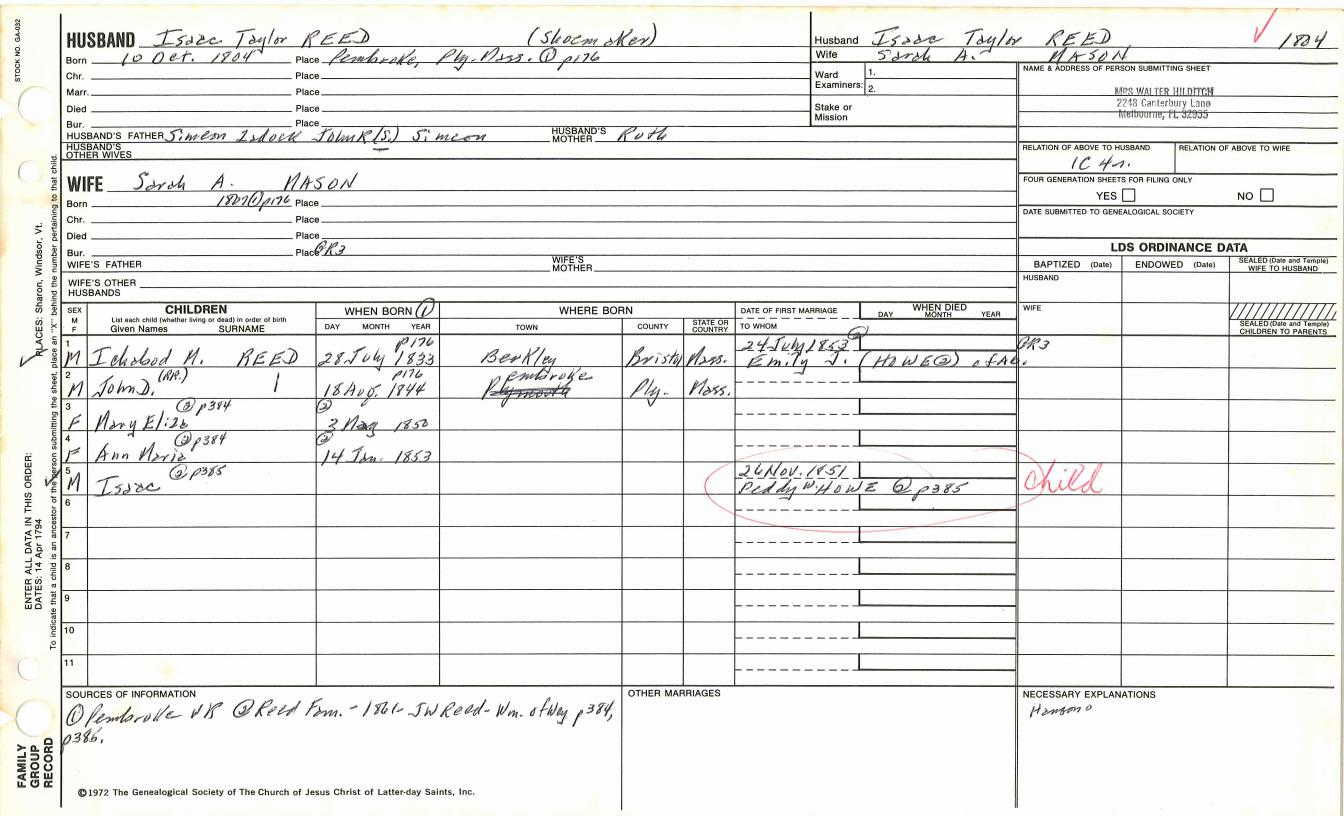 STOCK NO. GA-032
HUSBAND Isaac Taylor REED (Shoemaker)
Born 10 Oct. 1804 Place Pembroke, Ply. Mass. ① p176
Chr. Place
Marr. Place
Died Place
Bur. Place
HUSBAND'S FATHER Simeon John R (S.) Simeon HUSBAND'S MOTHER Ruth
HUSBAND'S OTHER WIVES
WIFE Sarah A. MASON
Born 1807 ① p176 Place
Chr. Place
Died Place
Bur. Place GR3
WIFE'S FATHER WIFE'S MOTHER
WIFE'S OTHER HUSBANDS
Husband Isaac Taylor REED 1804
Wife Sarah A. MASON
Ward Examiners: 1.
2.
Stake or Mission
NAME & ADDRESS OF PERSON SUBMITTING SHEET
MRS WALTER HILDITCH
2248 Canterbury Lane
Melbourne, FL 32935
RELATION OF ABOVE TO HUSBAND RELATION OF ABOVE TO WIFE
1C 4r.
FOUR GENERATION SHEETS FOR FILING ONLY
YES NO
DATE SUBMITTED TO GENEALOGICAL SOCIETY
LDS ORDINANCE DATA
BAPTIZED (Date) ENDOWED (Date) SEALED (Date and Temple) WIFE TO HUSBAND
HUSBAND
WIFE
SEALED (Date and Temple) CHILDREN TO PARENTS
SEX M F CHILDREN WHEN BORN ① WHERE BORN DATE OF FIRST MARRIAGE WHEN DIED
List each child (whether living or dead) in order of birth
Given Names SURNAME DAY MONTH YEAR TOWN COUNTY STATE OR COUNTRY TO WHOM DAY MONTH YEAR
1 p176 24 July 1853 ② GR3
M Ichabod M. REED 28 July 1833 Berkley Bristol Mass. Emily J. (HOWE ②) of Ab.
2 (RR.) p176 Pembroke
M John D. 18 Aug. 1844 Plymouth Ply. Mass.
3 ② p384 ②
F Mary Eliza 3 May 1850
4 ② p384 ②
F Ann Maria 14 Jan. 1853
5 ② p385 26 Nov. 1851
M Isaac Peddy W. HOWE ② p385 child
6
7
8
9
10
11
SOURCES OF INFORMATION
① Pembroke VR ② Reed Fam. - 1861 - JW Reed - Wm. of Wey p384,
p386.
OTHER MARRIAGES
NECESSARY EXPLANATIONS
©1972 The Genealogical Society of The Church of Jesus Christ of Latter-day Saints, Inc.
ENTER ALL DATA IN THIS ORDER:
DATES: 14 Apr 1794
PLACES: Sharon, Windsor, Vt.
To indicate that a child is an ancestor of the person submitting the sheet, place an "X" behind the number pertaining to that child.
FAMILY
GROUP
RECORD